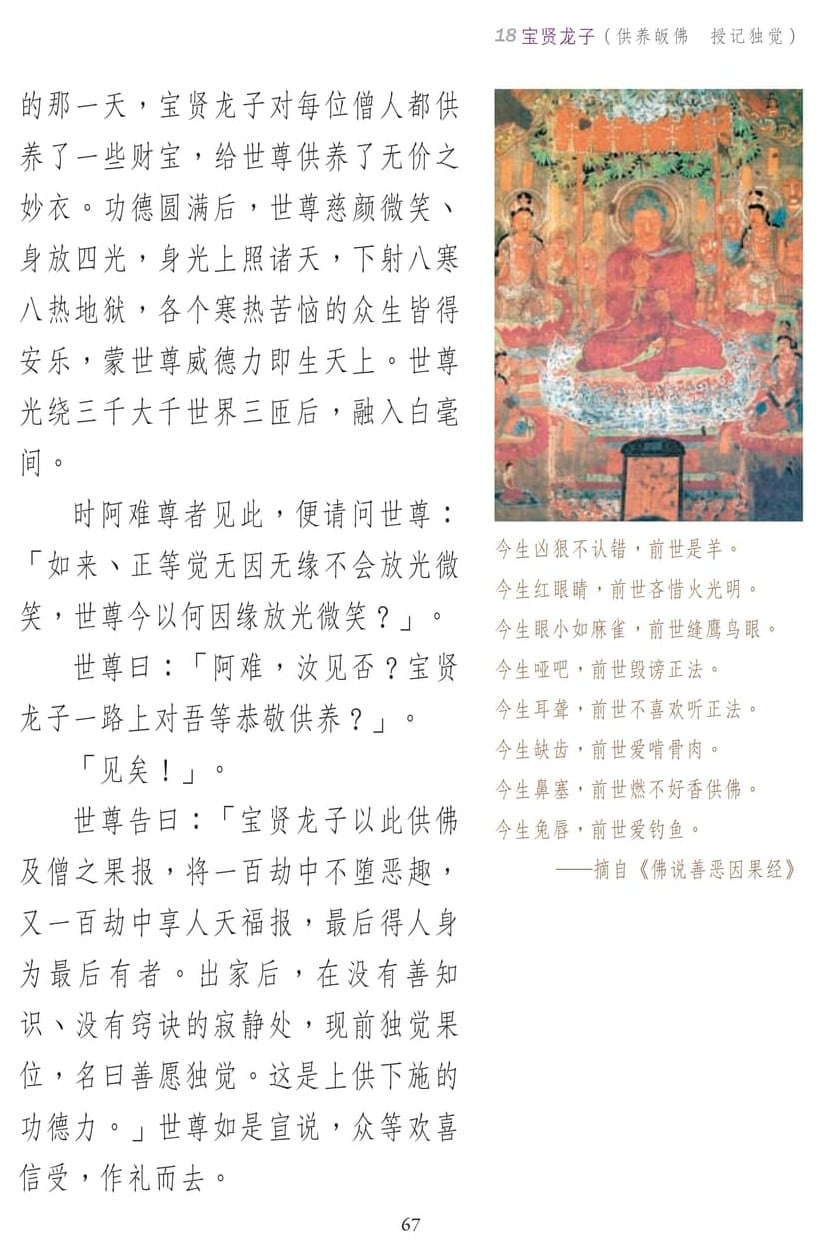 18 宝贤龙子（供养皈佛　授记独觉）
的那一天，宝贤龙子对每位僧人都供
养了一些财宝，给世尊供养了无价之
妙衣。功德圆满后，世尊慈颜微笑、
身放四光，身光上照诸天，下射八寒
八热地狱，各个寒热苦恼的众生皆得
安乐，蒙世尊威德力即生天上。世尊
光绕三千大千世界三匝后，融入白毫
间。
时阿难尊者见此，便请问世尊：
「如来、正等觉无因无缘不会放光微
笑，世尊今以何因缘放光微笑？」。
世尊曰：「阿难，汝见否？宝贤
龙子一路上对吾等恭敬供养？」。
「见矣！」。
世尊告曰：「宝贤龙子以此供佛
及僧之果报，将一百劫中不堕恶趣，
又一百劫中享人天福报，最后得人身
为最后有者。出家后，在没有善知
识、没有窍诀的寂静处，现前独觉果
位，名曰善愿独觉。这是上供下施的
功德力。」世尊如是宣说，众等欢喜
信受，作礼而去。
今生凶狠不认错，前世是羊。
今生红眼睛，前世吝惜火光明。
今生眼小如麻雀，前世缝鹰鸟眼。
今生哑吧，前世毁谤正法。
今生耳聋，前世不喜欢听正法。
今生缺齿，前世爱啃骨肉。
今生鼻塞，前世燃不好香供佛。
今生兔唇，前世爱钓鱼。
——摘自《佛说善恶因果经》
67